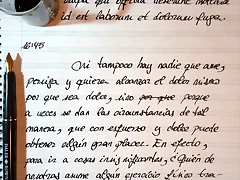 culpa qui officia deserunt mollitia
id est laborum et dolorum fuga.
16:45
Ni tampoco hay nadie que ame,
persiga y quiera alcanzar el dolor mismo
por que sea dolor, sino porque porque
a veces se dan las circunstancias de tal
manera, que con esfuerzo y dolor puede
obtener algún gran placer. En efecto,
para ir a cosas insignificantes, ¿Quién de
nosotros asume algún ejercicio físico tra-